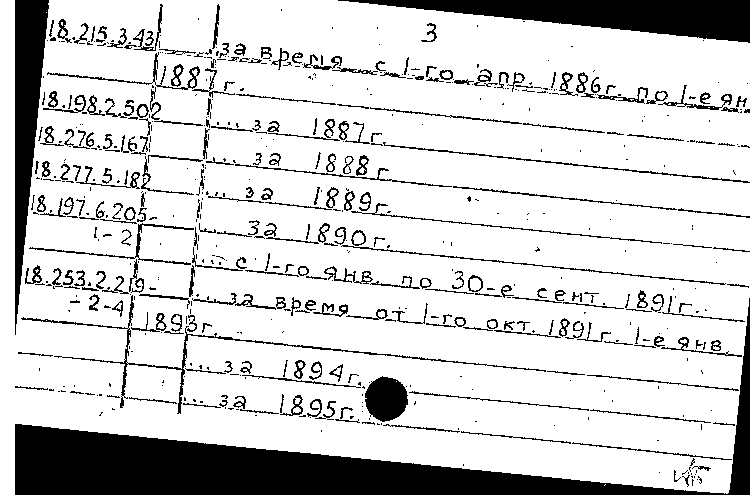 3
18.215.3.43 ...за время с 1-го апр. 1886г. по 1-е ян
1887г.
18.198.2.502 ... за 1887г.
18.276.5.167 ... за 1888г
18.277.5.182 ... за 1889г.
18.197.6.205- ... за 1890г.
1-2 ... с 1-го янв. по 30-е сент. 1891г.
18.253.2.219- ... за время от 1-го окт. 1891г. 1-е янв.
-2-4 1893г.
... за 1894г.
... за 1895г.